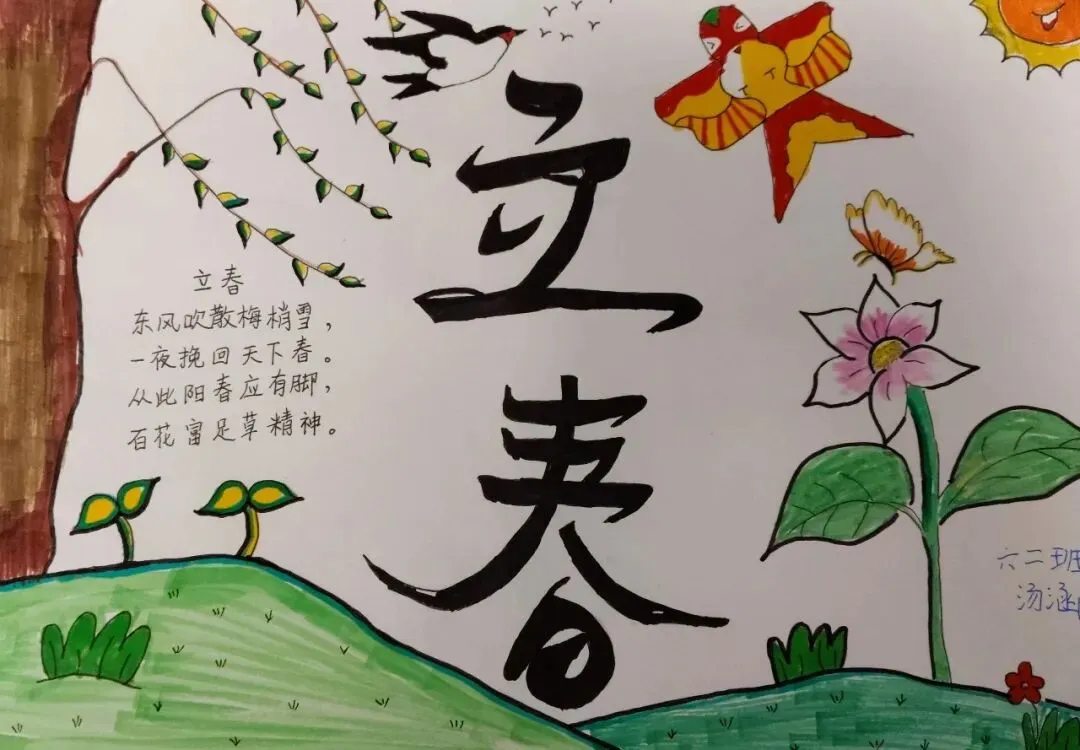 立春
立春
东风吹散梅梢雪，
一夜挽回天下春。
从此阳春应有脚，
百花富足草精神。
六二班
汤涵